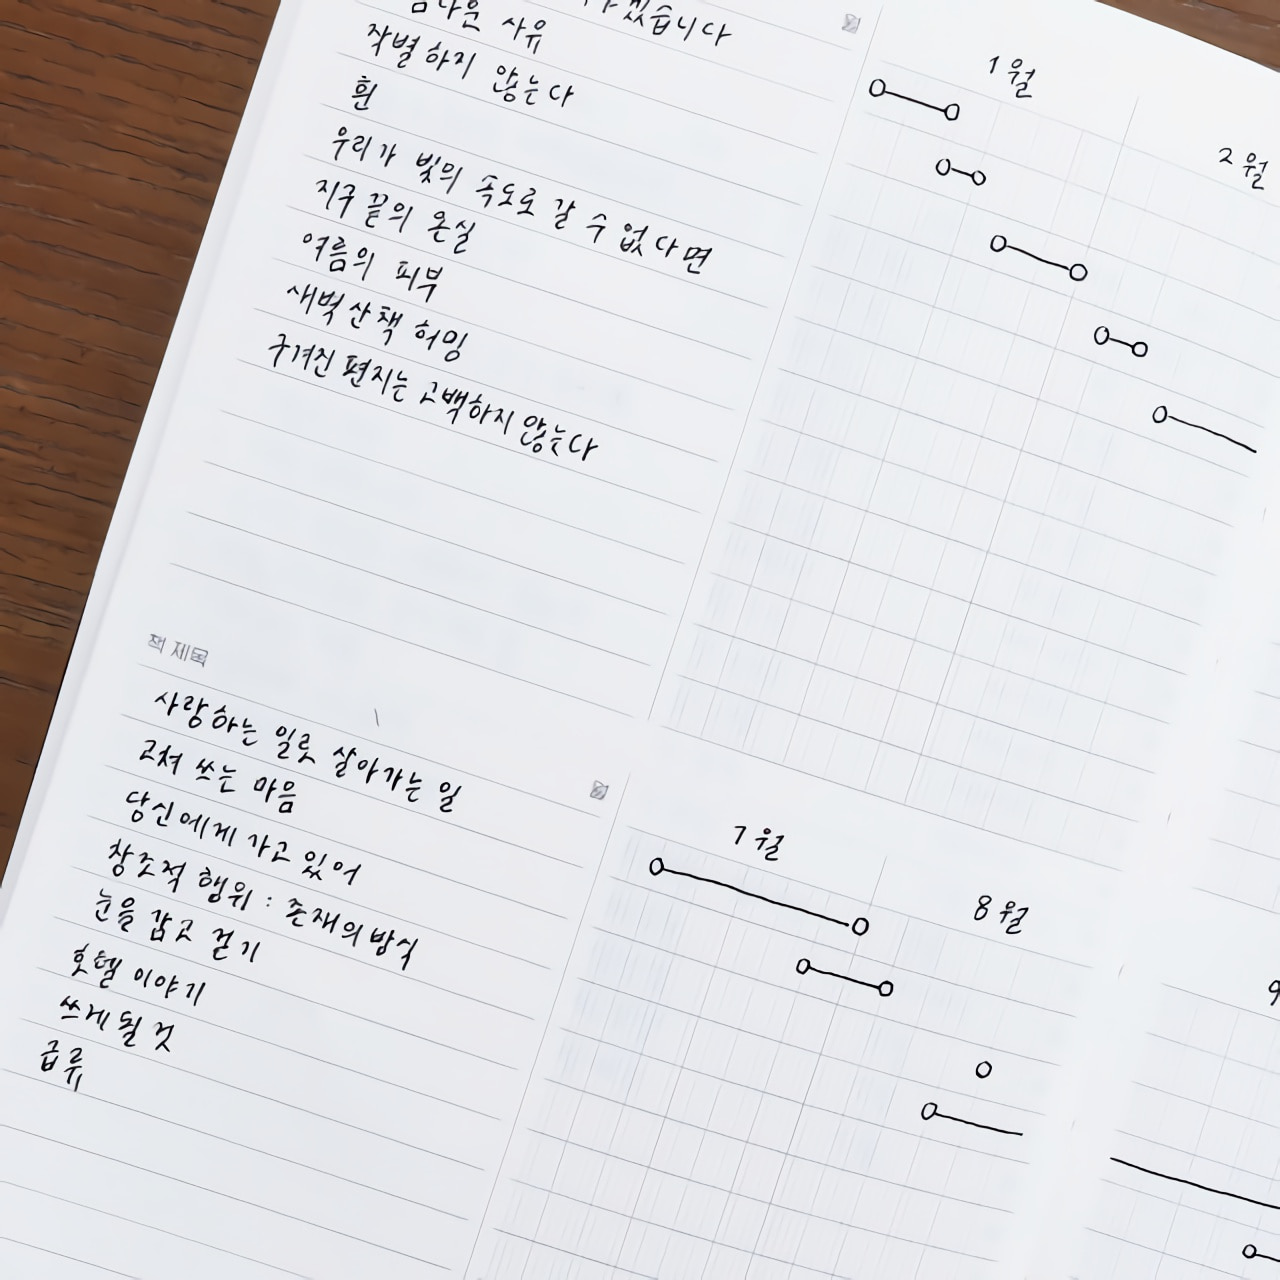 겠습니다
사유
작별하지 않는다
흰
우리가 빛의 속도로 갈 수 없다면
지구 끝의 온실
여름의 피부
새벽 산책 허밍
구겨진 편지는 고백하지 않는다
1월
2월
책 제목
사랑하는 일로 살아가는 일
고쳐 쓰는 마음
당신에게 가고 있어
창조적 행위 : 존재의 방식
눈을 감고 걷기
호텔 이야기
쓰게 될 것
급류
7월
8월
9